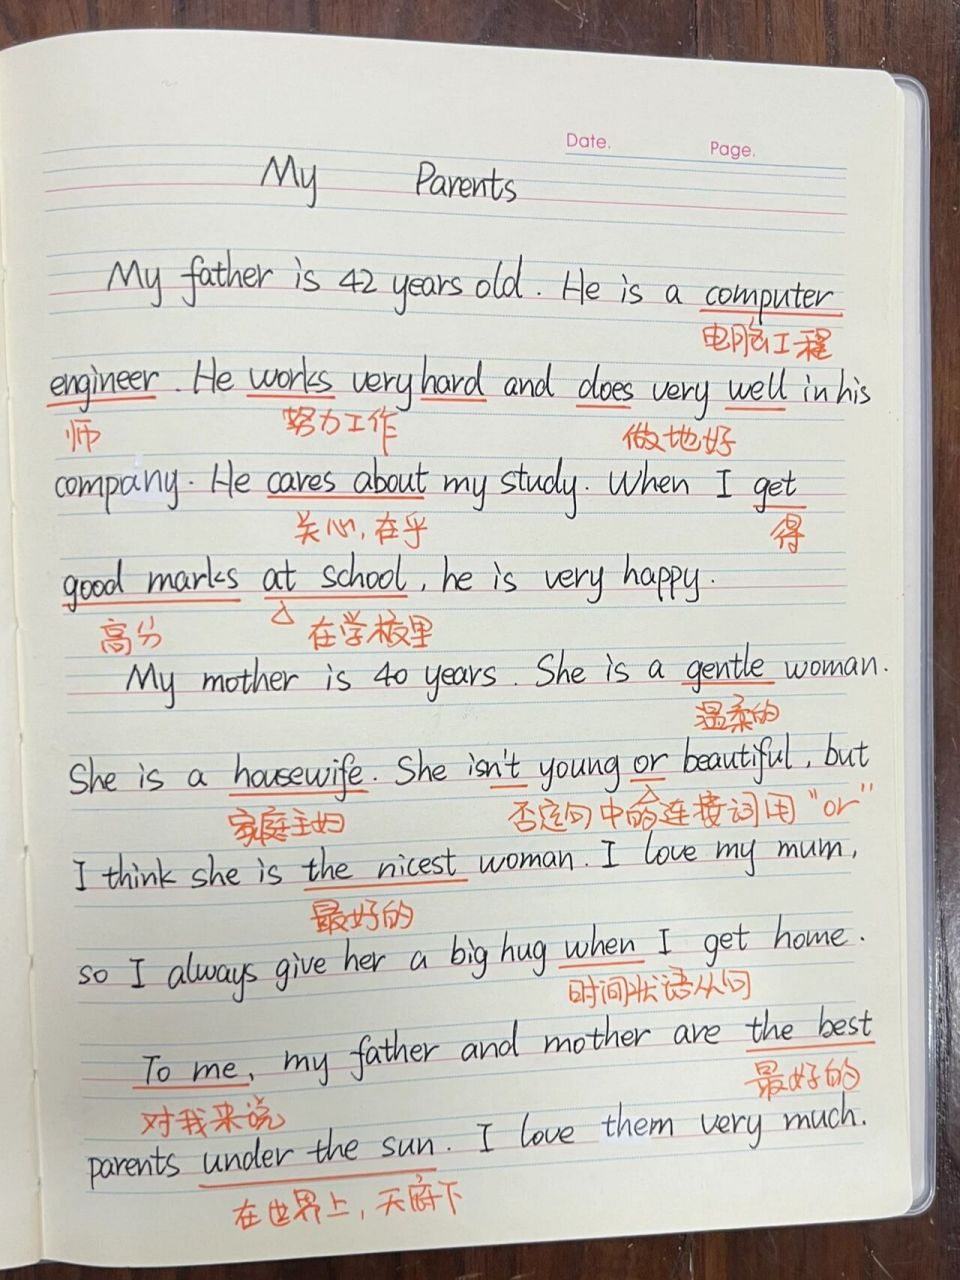 Date. Page.
My Parents
My father is 42 years old. He is a computer
电脑工程
engineer. He works very hard and does very well in his
师 努力工作 做地好
company. He cares about my study. When I get
关心,在乎 得
good marks at school, he is very happy.
高分 在学校里
My mother is 40 years. She is a gentle woman.
温柔的
She is a housewife. She isn't young or beautiful, but
家庭主妇 否定句中的连接词用"or"
I think she is the nicest woman. I love my mum,
最好的
so I always give her a big hug when I get home.
时间状语从句
To me, my father and mother are the best
对我来说 最好的
parents under the sun. I love them very much.
在世界上,天底下